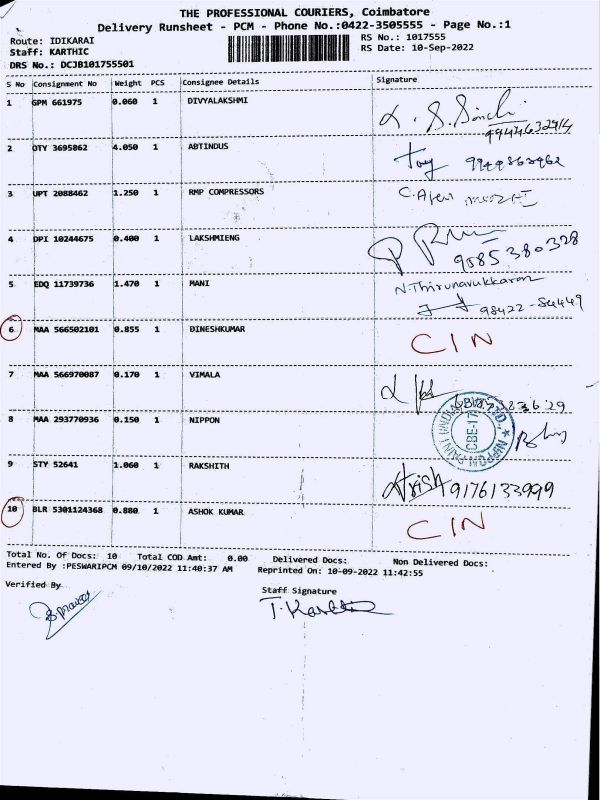 THE PROFESSIONAL COURIERS, Coimbatore
Delivery Runsheet - PCM - Phone No.:0422-3505555 - Page No.:1
Route: IDIKARAI
RS No.: 1017555
Staff: KARTHIC
RS Date: 10-Sep-2022
DRS No.: DCJB101755501
S No Consignment No Weight PCS Consignee Details Signature
1 GPM 661975 0.060 1 DIVYALAKSHMI
9944632914
2 OTY 3695862 4.050 1 ABTINDUS
3 UPT 2088462 1.250 1 RMP COMPRESSORS
4 DPI 10244675 0.400 1 LAKSHMIENG
9585380328
5 EDQ 11739736 1.470 1 MANI N.Thirunavukkaran
98422-54449
6 MAA 566502101 0.855 1 DINESHKUMAR CIN
7 MAA 566970087 0.170 1 VIMALA
8 MAA 293770936 0.150 1 NIPPON
NIPPON PAINT (INDIA) CBE-17
9 STY 52641 1.060 1 RAKSHITH
9176133999
10 BLR 5301124368 0.880 1 ASHOK KUMAR CIN
Total No. Of Docs: 10 Total COD Amt: 0.00 Delivered Docs: Non Delivered Docs:
Entered By :PESWARIPCM 09/10/2022 11:40:37 AM Reprinted On: 10-09-2022 11:42:55
Verified By
Staff Signature